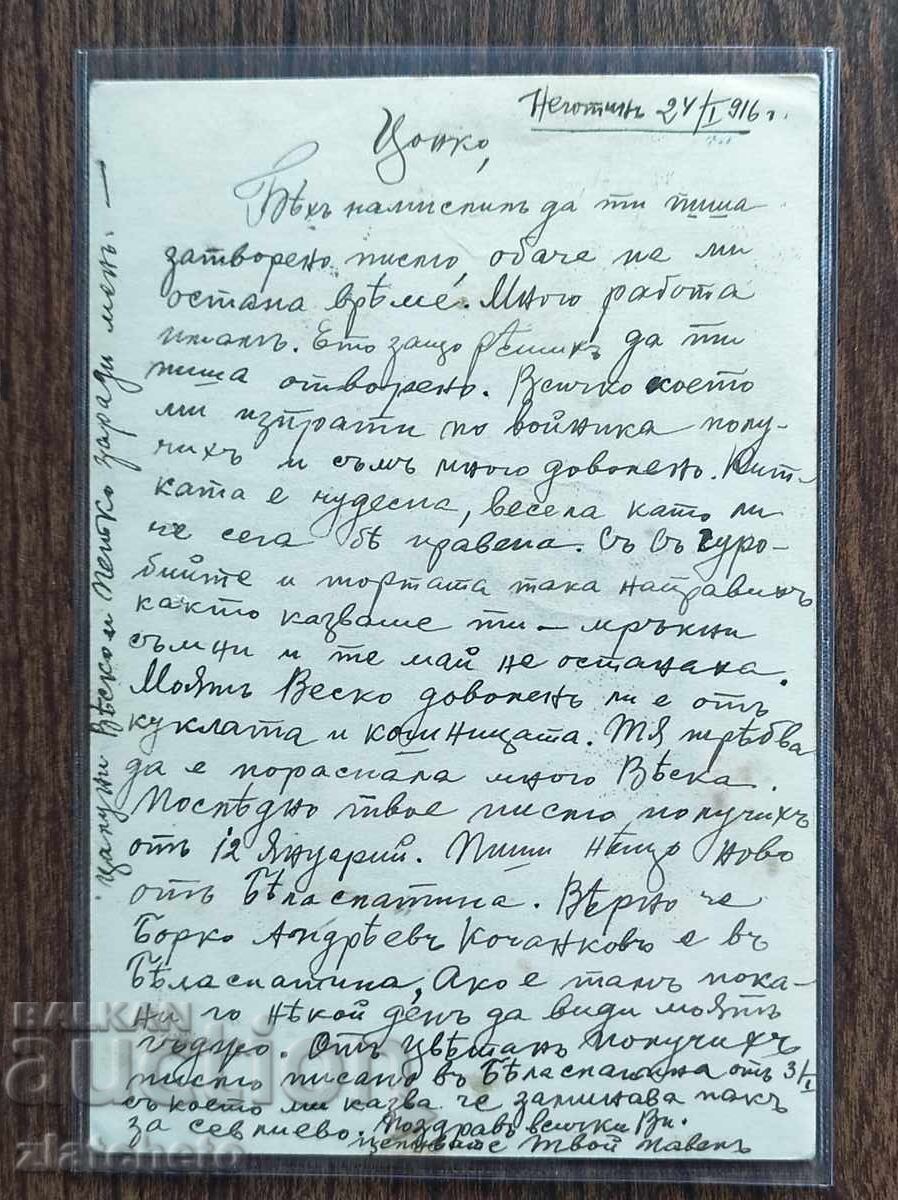 Неготинъ 24/I 916 г.
Цонко,
Бѣхъ намислилъ да ти пиша
затворено писмо, обаче не ми
остана врѣме. Много работа
имамъ. Ето защо рѣшихъ да ти
пиша отворено. Всичко което
ми изпрати по войника полу-
чихъ и съмъ много доволенъ. Кит-
ката е чудесна, весела като ли
че сега бѣ правена. Съ съ гуро-
бийте и тортата така направихъ
както казваше ти – мръкни
съмни и те май не останаха.
Моятъ Веско доволенъ ли е отъ
куклата и колиницата. Тя трѣбва
да е пораснала много Вѣска.
Послѣдно твое писмо получихъ
отъ 12 Януарий. Пиши нѣщо ново
отъ Бѣласлатина. Вѣрно че
Борко Андрѣевъ Кочанковъ е въ
Бѣласлатина, Ако е тамъ пока-
ни го нѣкой день да види моятъ
Отъ Цвѣтанъ получихъ
писмо писано въ Бѣласлатина отъ 3/I
съ което ми казва че заминава пакъ
за Севлиево. Поздравъ всички Ви.
Твой Павелъ
Цалуни Вѣско и Петко заради менъ. —
BALKAN
auction
zlatcheto